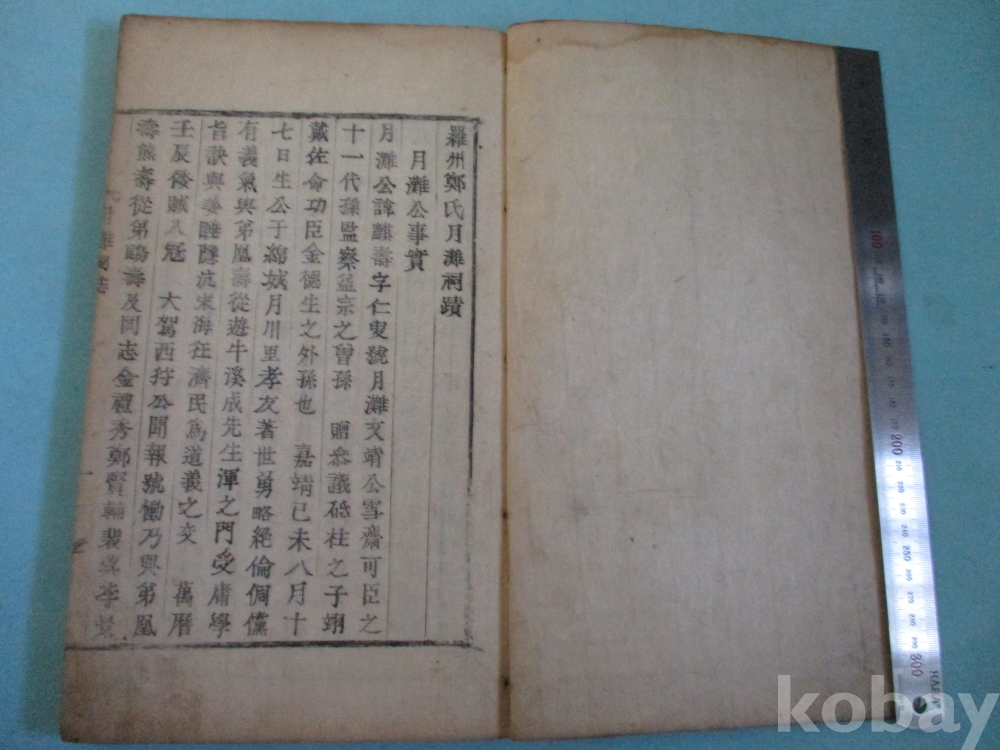 羅州鄭氏月灘祠蹟
月灘公事實
月灘公諱麒壽字仁叟號月灘文靖公雪齋可臣之
十一代孫監察益宗之曾孫 贈叅議砥柱之子翊
戴佐命功臣金德生之外孫也 嘉靖己未八月十
七日生公于綿城月川里孝友著世勇略絶倫倜儻
有義氣與弟凰壽從遊牛溪成先生渾之門受庸學
旨訣與姜睡隱沆宋海狂濟民爲道義之交 萬曆
壬辰倭賊入冦 大駕西狩公聞報號慟乃與弟凰
壽熊壽從弟鷗壽及同志金禮秀鄭賢輔裴 李
100
200
250
300
kobay